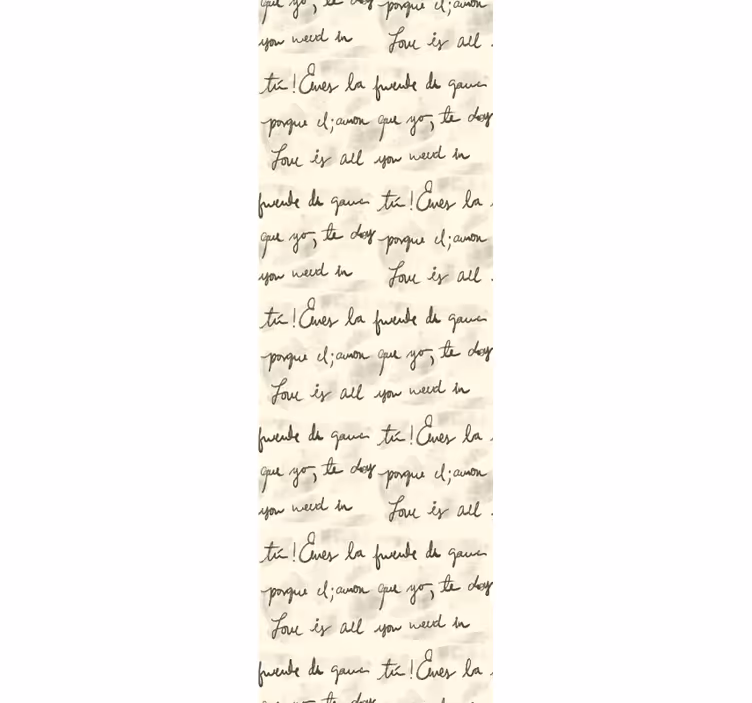 que yo, te doy porque el;amor
you need in Love is all
tú! Eres la fuente de gana
porque el;amor que yo, te doy
Love is all you need in
fuente de gana tú! Eres la
que yo, te doy porque el;amor
you need in Love is all
tú! Eres la fuente de gana
porque el;amor que yo, te doy
Love is all you need in
fuente de gana tú! Eres la
que yo, te doy porque el;amor
you need in Love is all
tú! Eres la fuente de gana
porque el;amor que yo, te doy
Love is all you need in
fuente de gana tú! Eres la
que yo, te doy